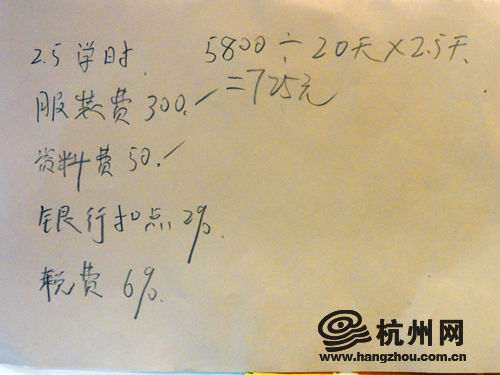 2.5学时.
5800÷20天×2.5天
=725元
服装费300.
资料费50.
银行扣点2%
税费6%.
杭州网
www.hangzhou.com.cn